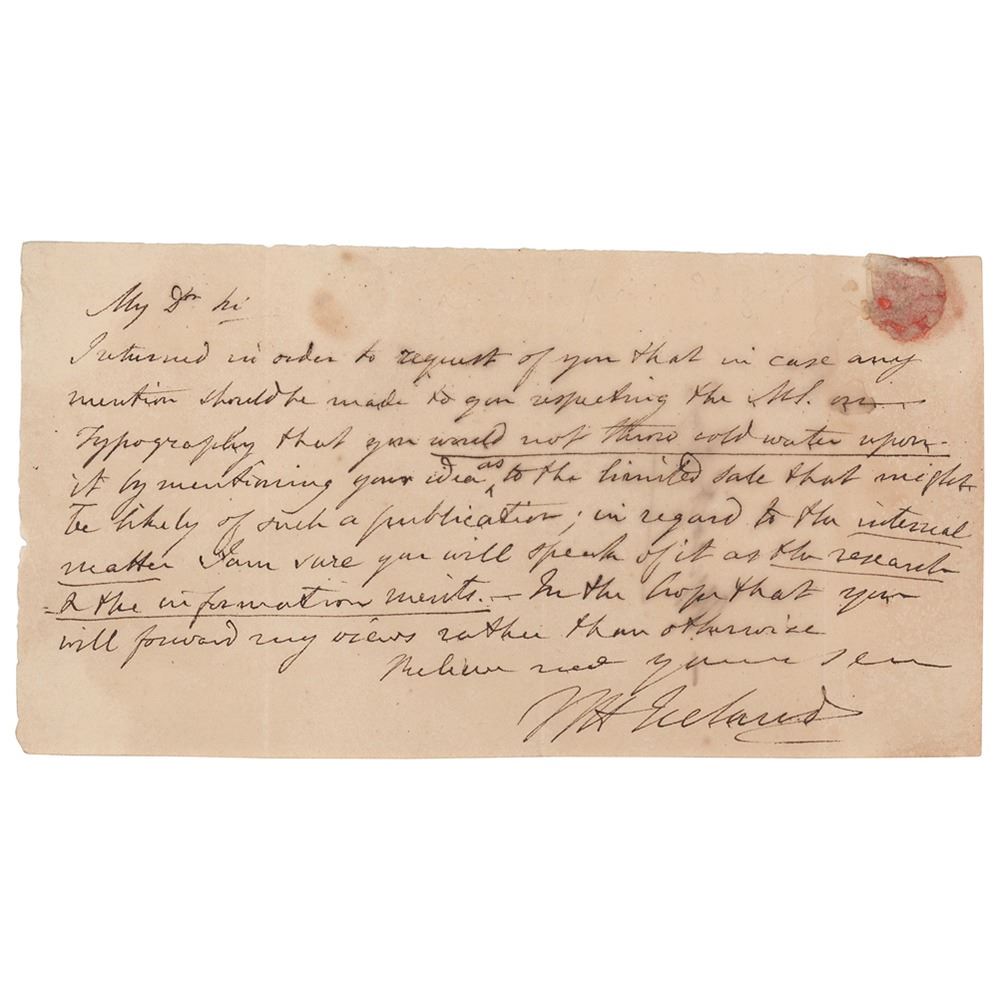 My Dr Sir
I returned in order to request of you that in case any
mention should be made to you respecting the MS. on
Typography that you would not throw cold water upon
it by mentioning your idea as to the limited sale that might
be likely of such a publication; in regard to the internal
matter I am sure you will speak of it as the research
& the information merits. — In the hope that you
will forward my views rather than otherwise
Believe me yours
W H Ireland